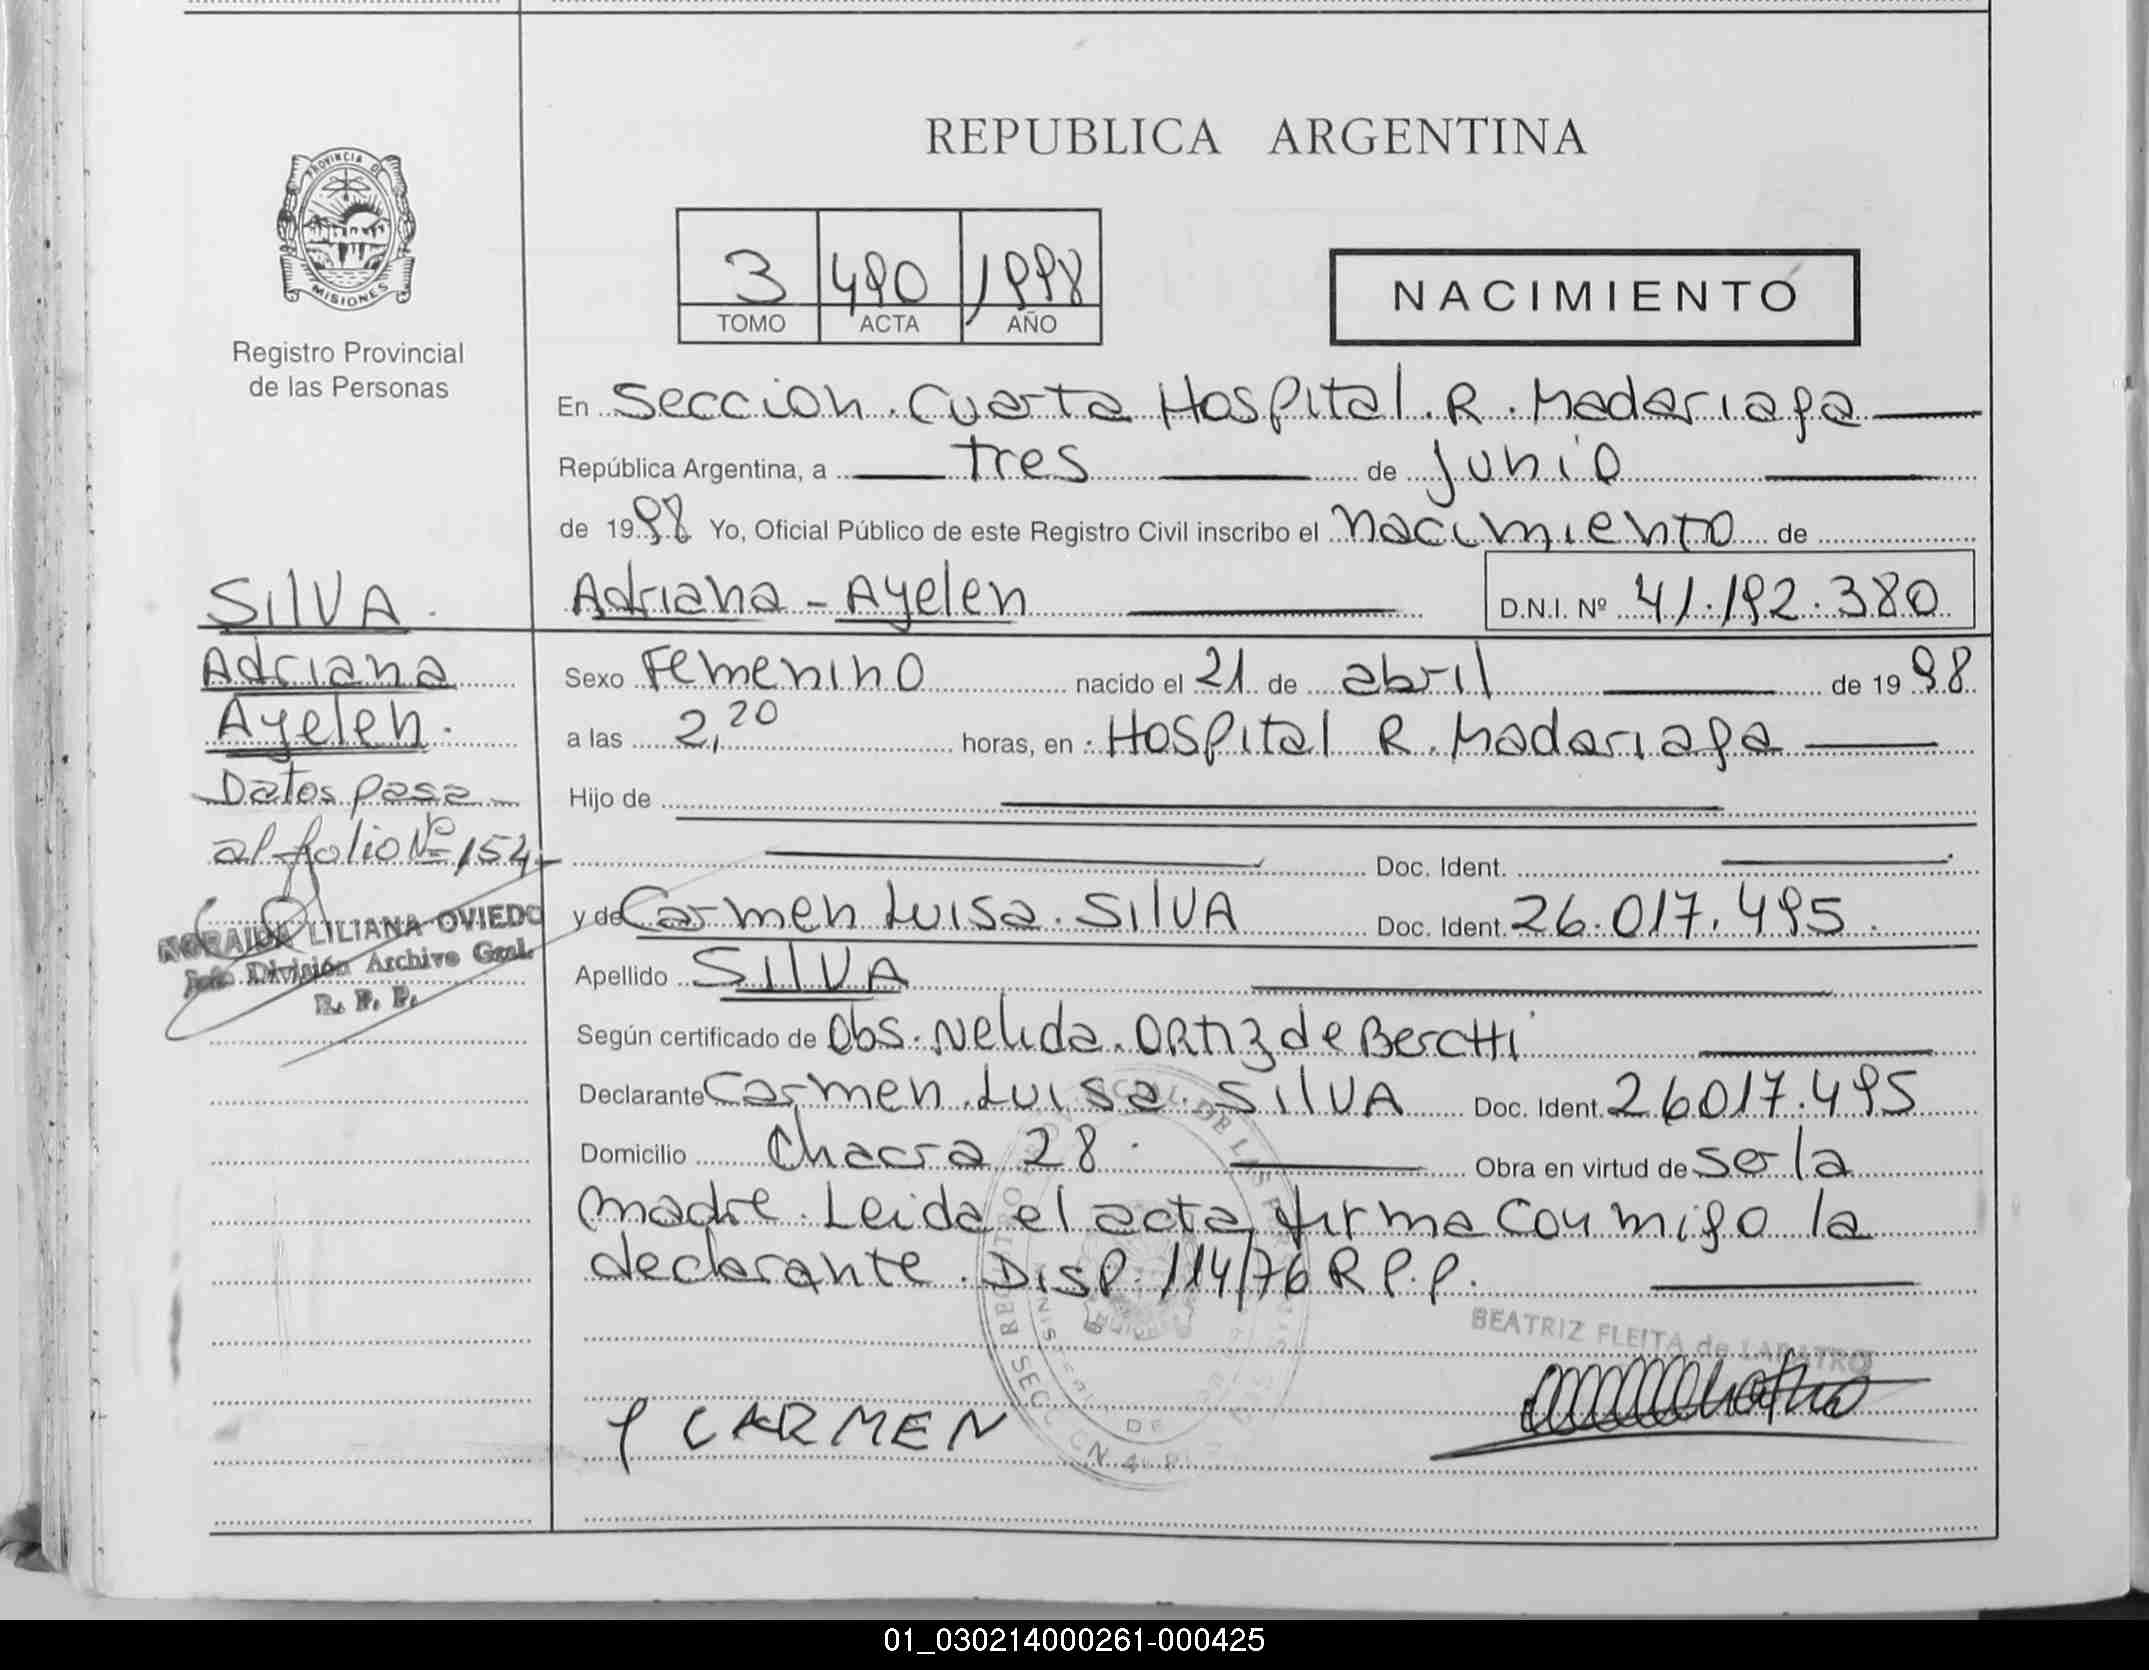 REPUBLICA ARGENTINA
PROVINCIA DE MISIONES
Registro Provincial
de las Personas
3 490 1998
TOMO ACTA AÑO
NACIMIENTO
En Seccion Cuarta Hospital R. Madariaga
República Argentina, a tres de Junio
de 1998 Yo, Oficial Público de este Registro Civil inscribo el nacimiento de
Adriana - Ayelen D.N.I. Nº 41.192.380
SIlVA.
Adriana
Ayelen.
Datos pasa
al folio Nº 154
NORAIDA LILIANA OVIEDO
Jefe División Archivo Gral.
R. P. P.
Sexo Femenino nacido el 21 de abril de 1998
a las 2,20 horas, en Hospital R. Madariaga
Hijo de
Doc. Ident.
y de Carmen Luisa. SIlVA Doc. Ident. 26.017.495.
Apellido SIlVA
Según certificado de Obs. Nelida. ORtiz de
Declarante Carmen Luisa. SIlVA Doc. Ident. 26017.495
Domicilio Chacra 28. Obra en virtud de ser la
madre. Leida el acta firma conmigo la
declarante. Disp. 114/76 R P.P.
BEATRIZ FLEITA de
CARMEN
01_030214000261-000425